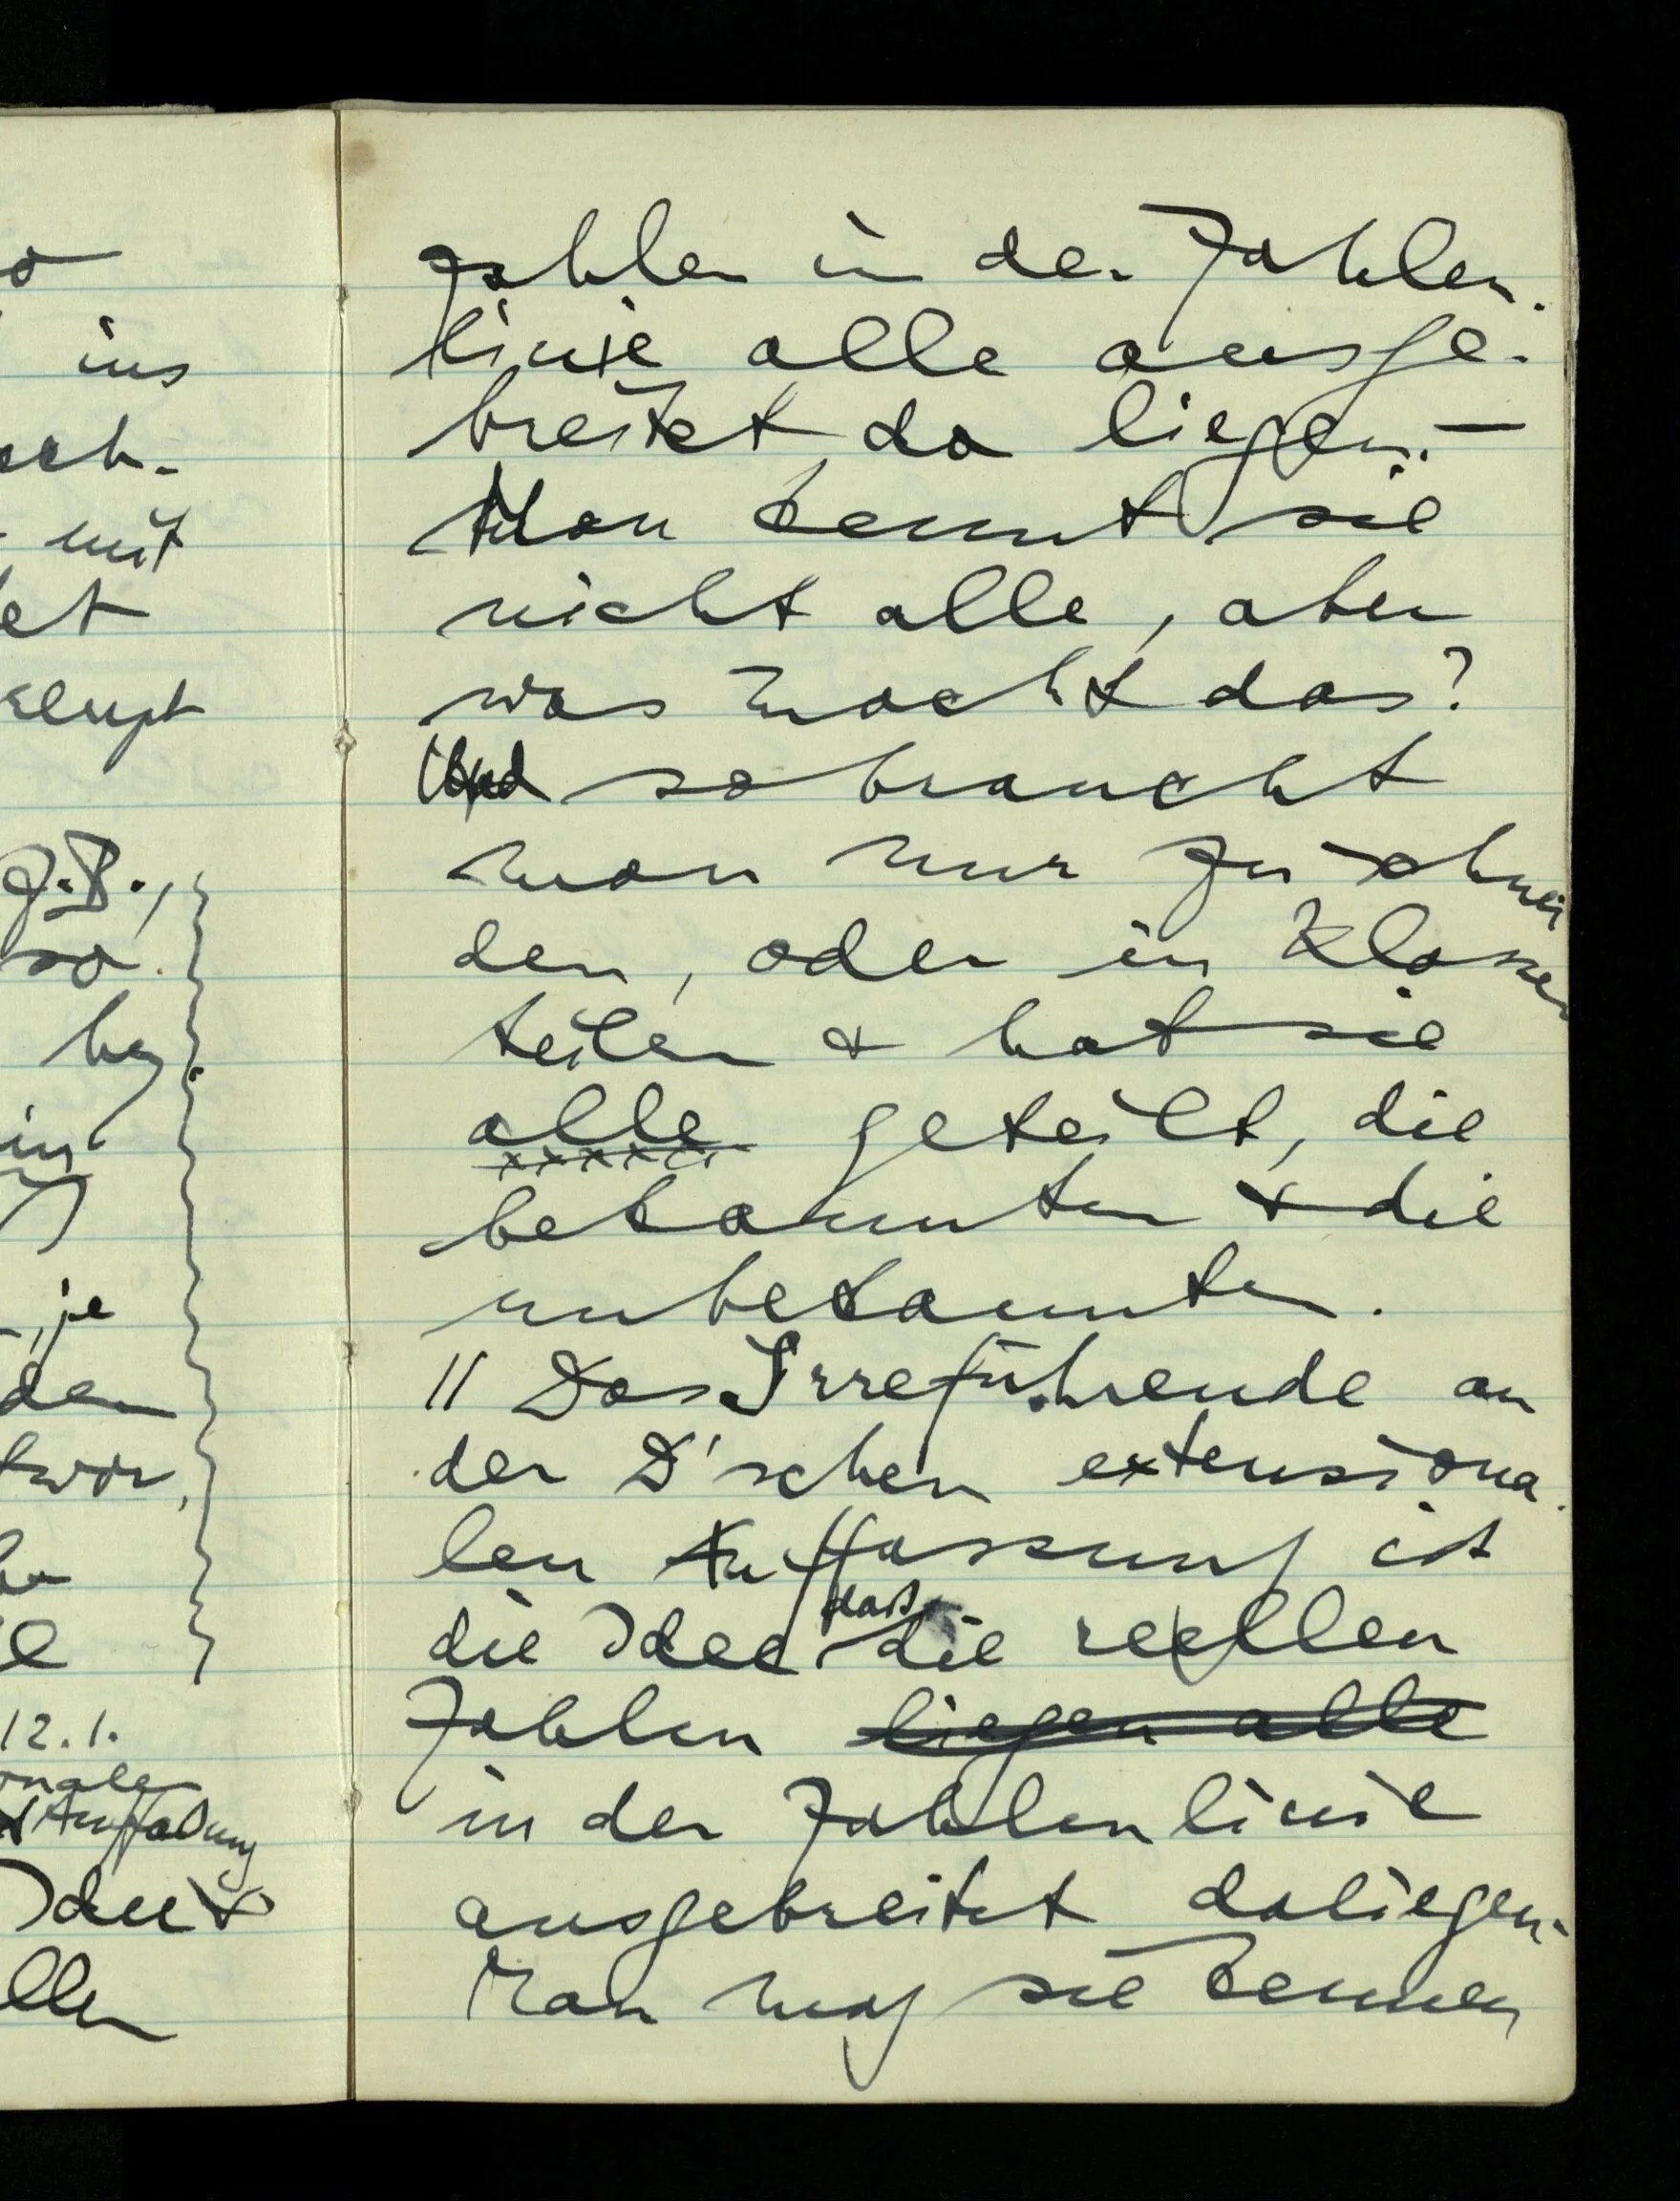 o
ins
ech-
mit
et
z.B.,
so
in
, je
den
twor,
12.1.
onale
Auffaßung
Idee
llen
zahlen in der Zahlen-
linie alle ausge-
breitet da liegen. –
Man kennt sie
nicht alle, aber
was macht das?
Und so braucht
man nur zu schnei
den, oder in Klassen
teilen & hat sie
alle geteilt, die
bekannten & die
unbekannten.
|| Das Irreführende an
der D'schen extensiona-
len Auffassung ist
daß
die Idee die reellen
Zahlen liegen alle
in der Zahlenlinie
ausgebreitet daliegen.
Man mag sie kennen